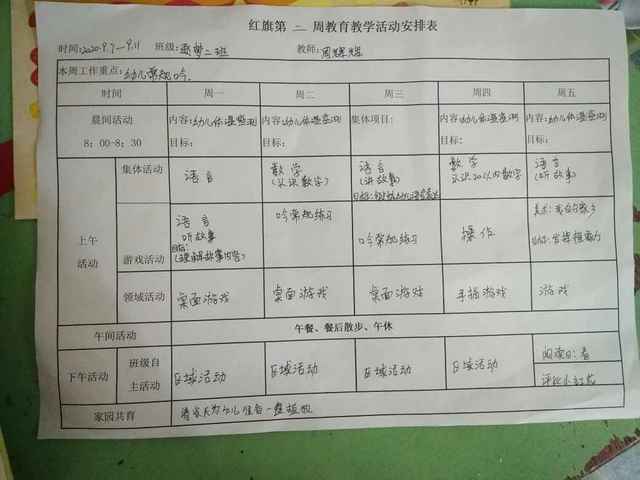 红旗第 二 周教育教学活动安排表
时间:2020.9.7—9.11 班级: 二班 教师:周
本周工作重点:幼儿常规
时间 周一 周二 周三 周四 周五
晨间活动 内容:幼儿体温监测 内容:幼儿体温监测 集体项目: 内容:幼儿体温监测 内容:幼儿体温监测
8：00-8：30 目标: 目标: 目标: 目标:
上午活动 集体活动 语言 数学 语言 数学 语言
(认识数字) (讲故事) 认识20以内数字 (听故事)
游戏活动 语言 常规练习 常规练习 操作 美术:我的家乡
听故事
目标:
(理解故事内容)
领域活动 桌面游戏 桌面游戏 桌面游戏 手指游戏 游戏
午间活动 午餐、餐后散步、午休
下午活动 班级自主活动 区域活动 区域活动 区域活动 区域活动 阅读日:春
评比小红花
家园共育 请家长为幼儿准备一盘